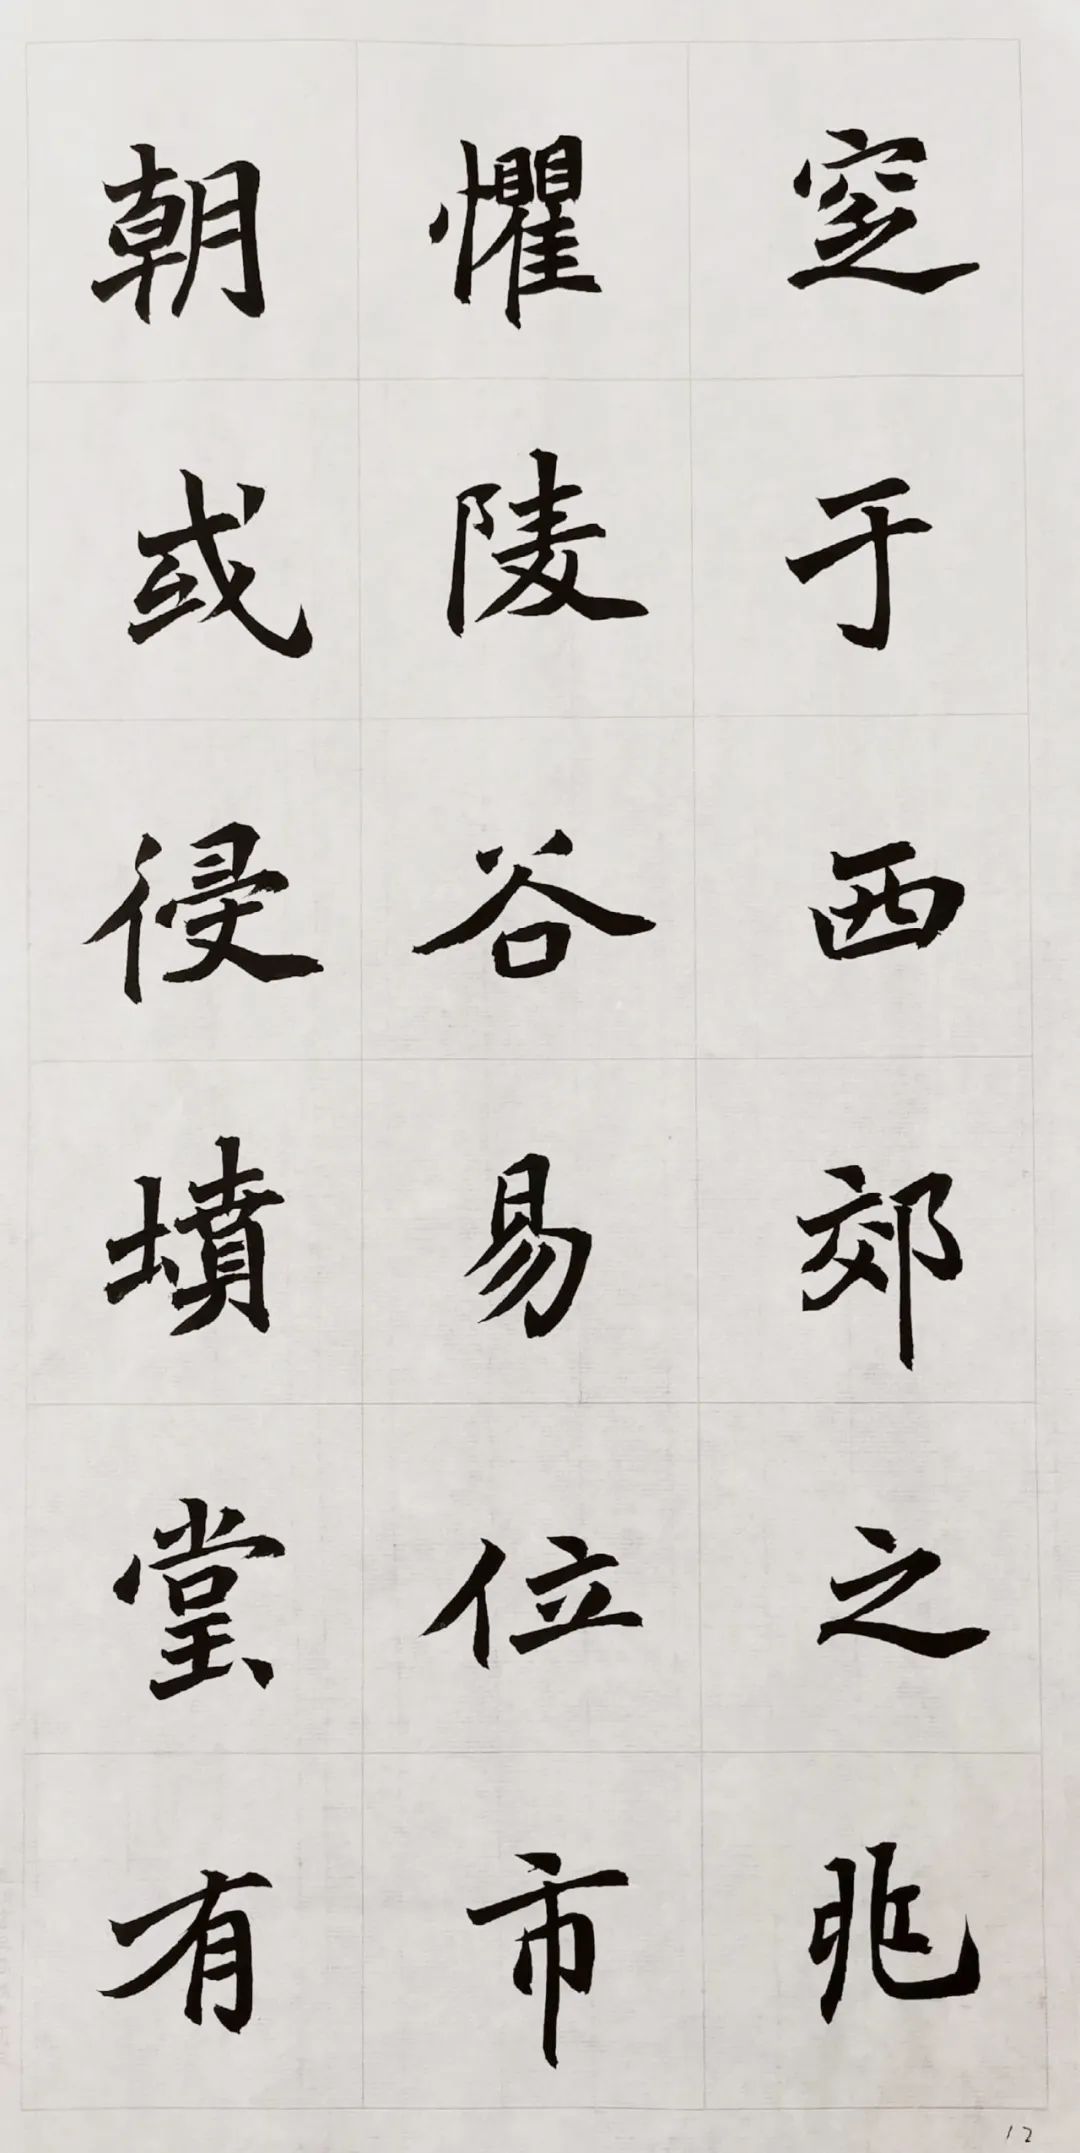 窆于西郊之兆
懼陵谷易位市
朝或侵墳堂有
12